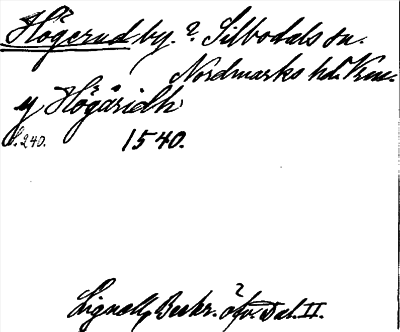 Högerud by. ? Silbodals sn.
Nordmarks hd. Vrml.
y Högåridh
s. 240. 1540.
Lignell, Beskr. öfv. Dal. II.